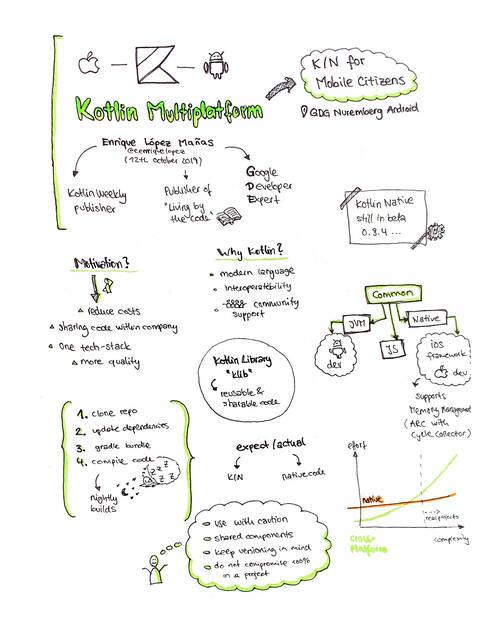 Kotlin Multiplatform
K/N for
Mobile Citizens
GDG Nuremberg Android
Enrique López Mañas
@eenriquelopez
(12th October 2019)
Kotlin Weekly
publisher
Publisher of
"Living by
the code"
Google
Developer
Expert
Kotlin Native
still in beta
0.8.4 ...
Motivation?
reduce costs
sharing code within company
One tech-stack
more quality
Why Kotlin?
modern language
Interoperability
community
support
Common
JVM
JS
Native
dev
iOS
framework
dev
supports
Memory Management
(ARC with
Cycle Collector)
Kotlin Library
"Klib"
reusable &
sharable code
1. clone repo
2. update dependencies
3. gradle bundle
4. compile code
zzz
zz
nightly
builds
expect/actual
K/N
native code
effort
native
real projects
cross-
platform
complexity
use with caution
shared components
keep versioning in mind
do not compromise 100%
in a project